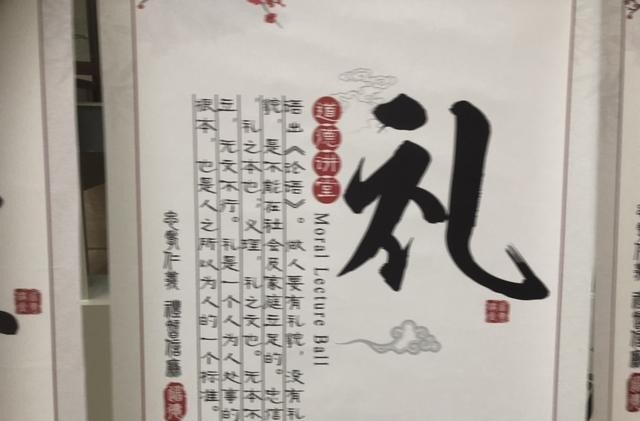 礼
道德讲堂
Moral Lecture Ball
语出《论语》。做人要有礼貌，没有礼
貌，是不能在社会及家庭立足的。忠信
礼之本也，义理，礼之文也。无本不
立，无文不行。礼是一个人为人处事的
根本。也是人之所以为人的一个标准。
忠孝仁義 禮智信廉